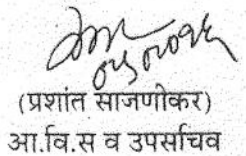 (प्रशांत साजणीकर)
आ.वि.स व उपसचिव